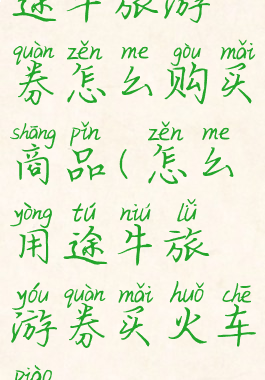 途牛旅游
quàn zěn me gòu mǎi
券怎么购买
shāng pǐn zěn me
商品(怎么
yòng tú niú lǚ
用途牛旅
yóu quàn mǎi huǒ chē
游券买火车
piào